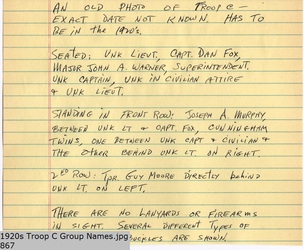 AN OLD PHOTO OF TROOP C -
EXACT DATE NOT KNOWN. HAS TO
BE IN THE 1920'S.
SEATED: UNK LIEUT, CAPT. DAN FOX,
MAJOR JOHN A. WARNER, SUPERINTENDENT,
UNK CAPTAIN, UNK IN CIVILIAN ATTIRE
& UNK LIEUT.
STANDING IN FRONT ROW: JOSEPH A. MURPHY,
BETWEEN UNK LT & CAPT. FOX, CUNNINGHAM
TWINS, ONE BETWEEN UNK CAPT & CIVILIAN &
THE OTHER BEHIND UNK LT. ON RIGHT.
2ND ROW: TPR. GUY MOORE DIRECTLY BEHIND
UNK LT. ON LEFT.
THERE ARE NO LANYARDS OR FIREARMS
IN SIGHT. SEVERAL DIFFERENT TYPES OF
BUCKLES ARE SHOWN.
1920s Troop C Group Names.jpg
867